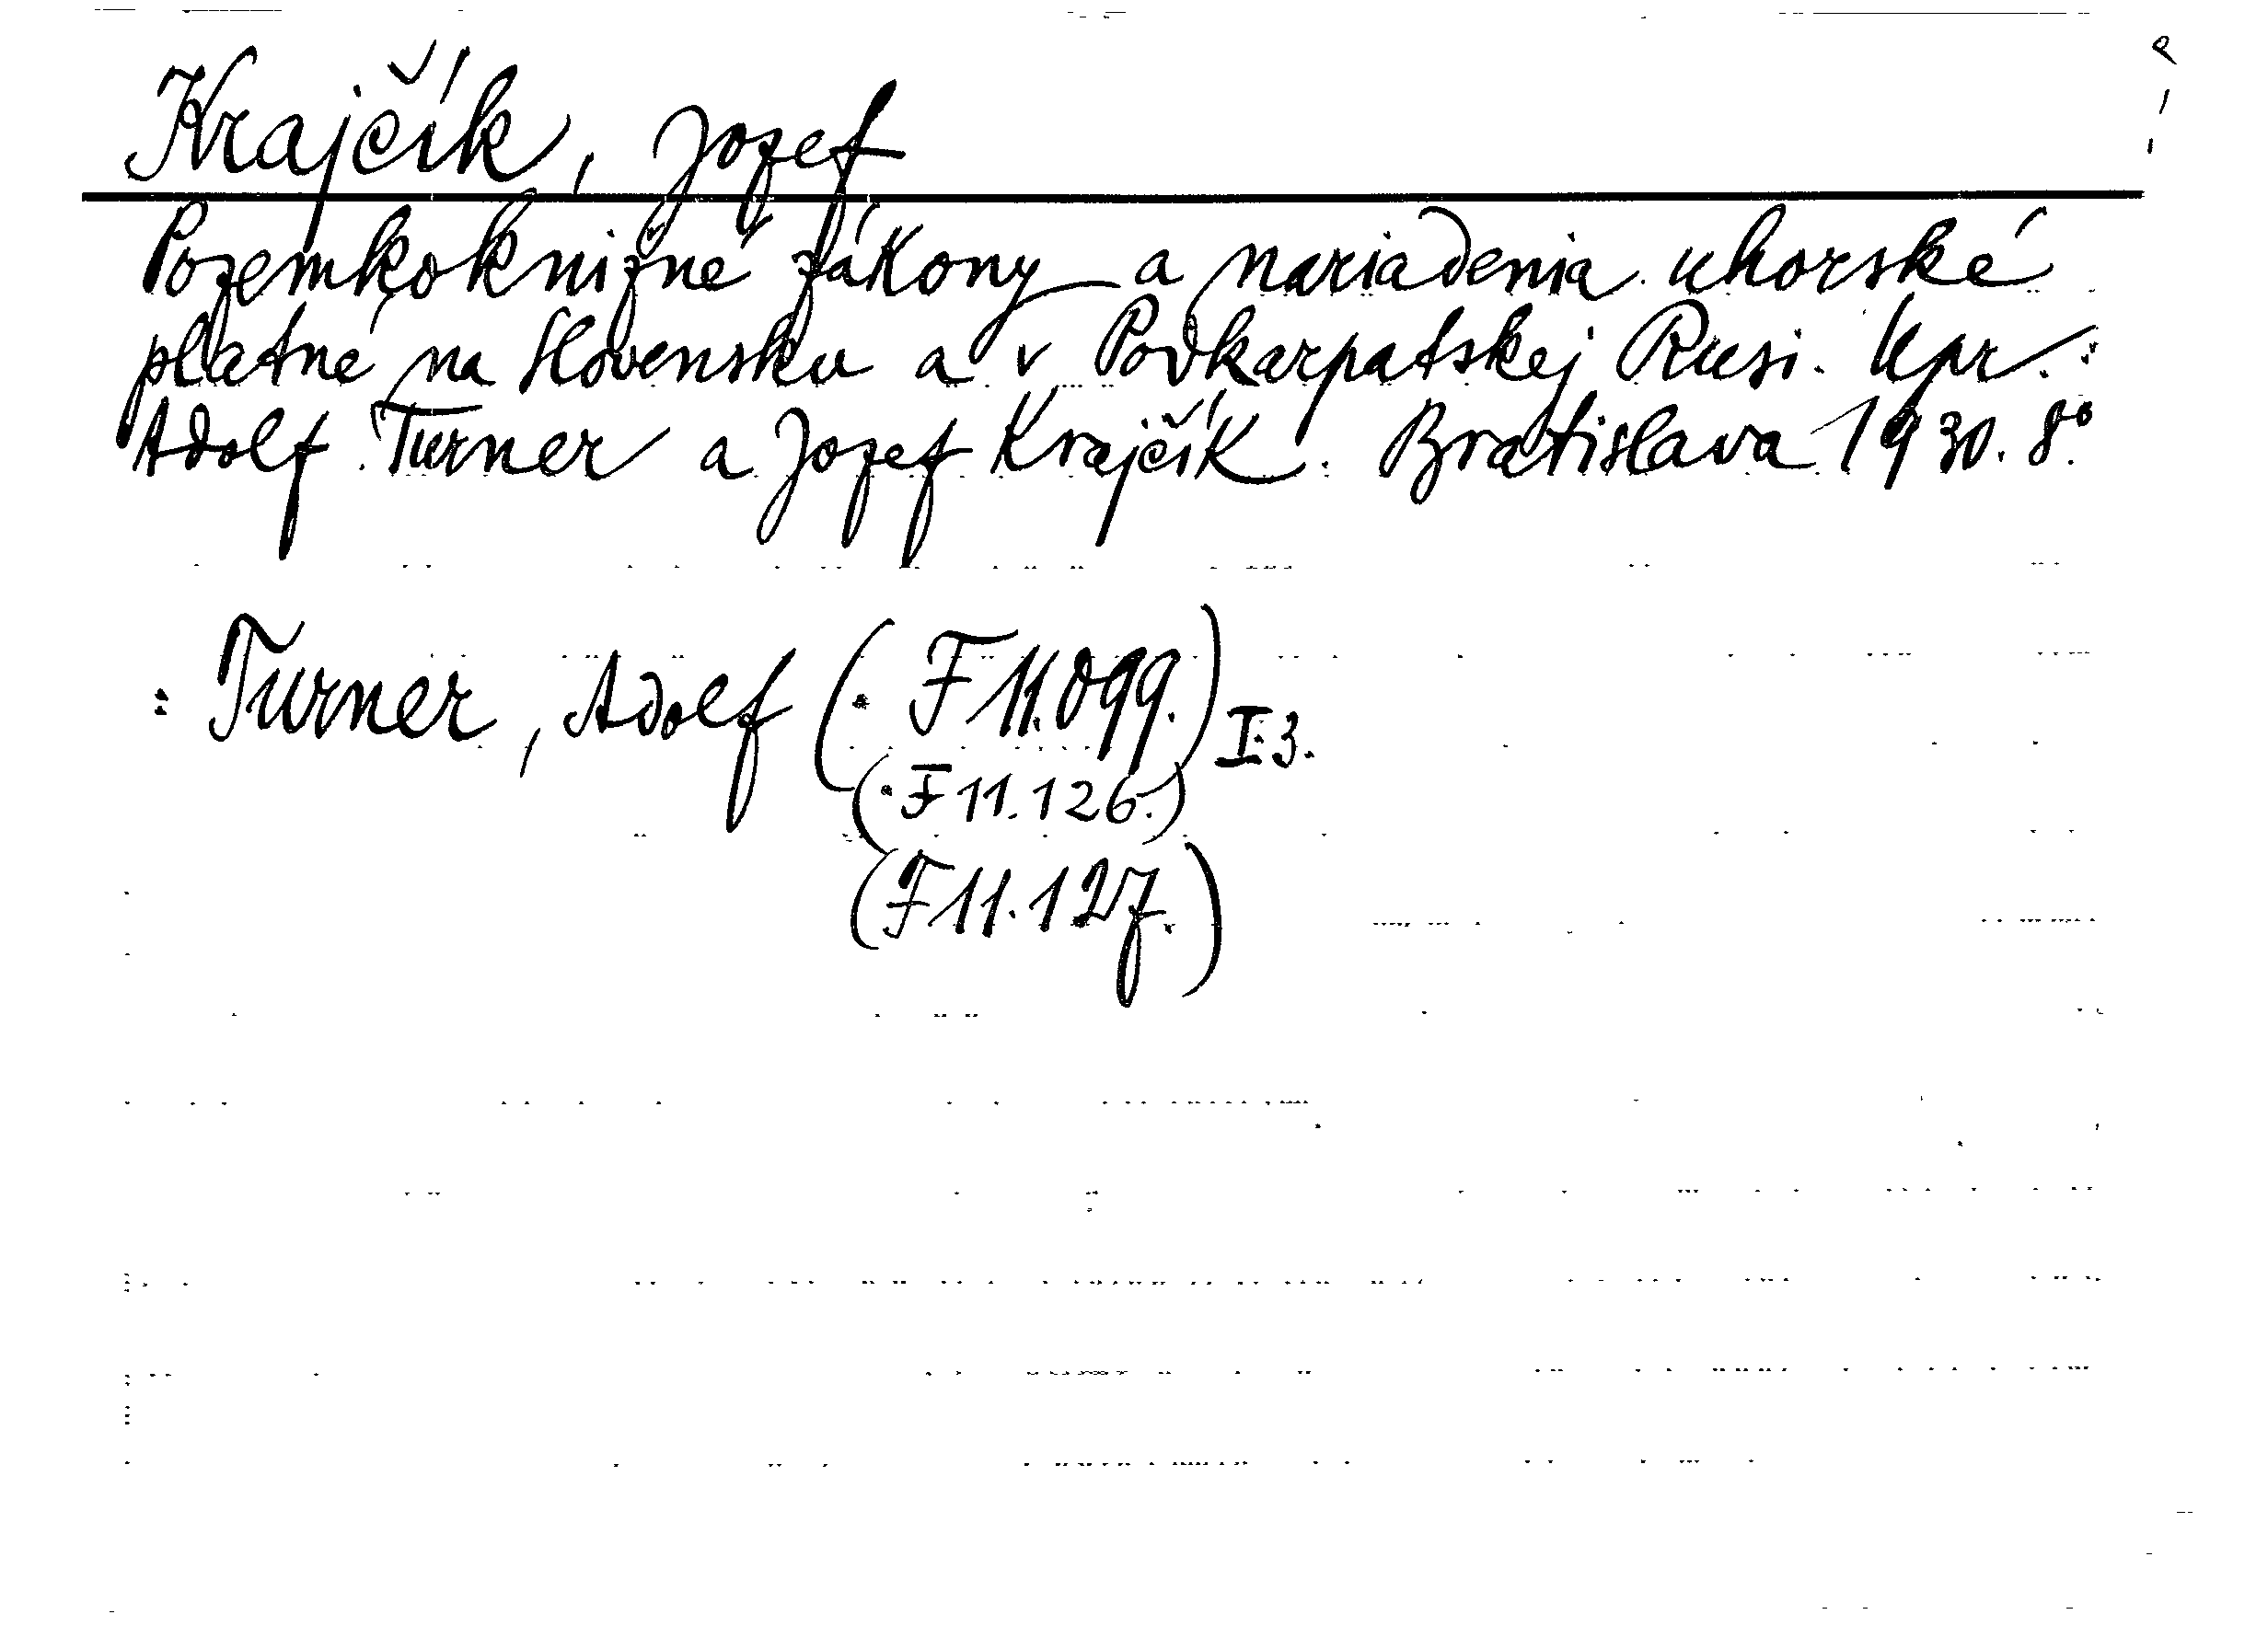 Krajčík, Jozef
Pozemkoknižné zákony a nariadenia uhorské
platné na Slovensku a v Podkarpatskej Rusi. Upr.:
Adolf Turner a Jozef Krajčík. Bratislava 1930. 8°.
: Turner, Adolf (· F 11.099.) I:3.
(· F 11.126.)
(F 11.127.)